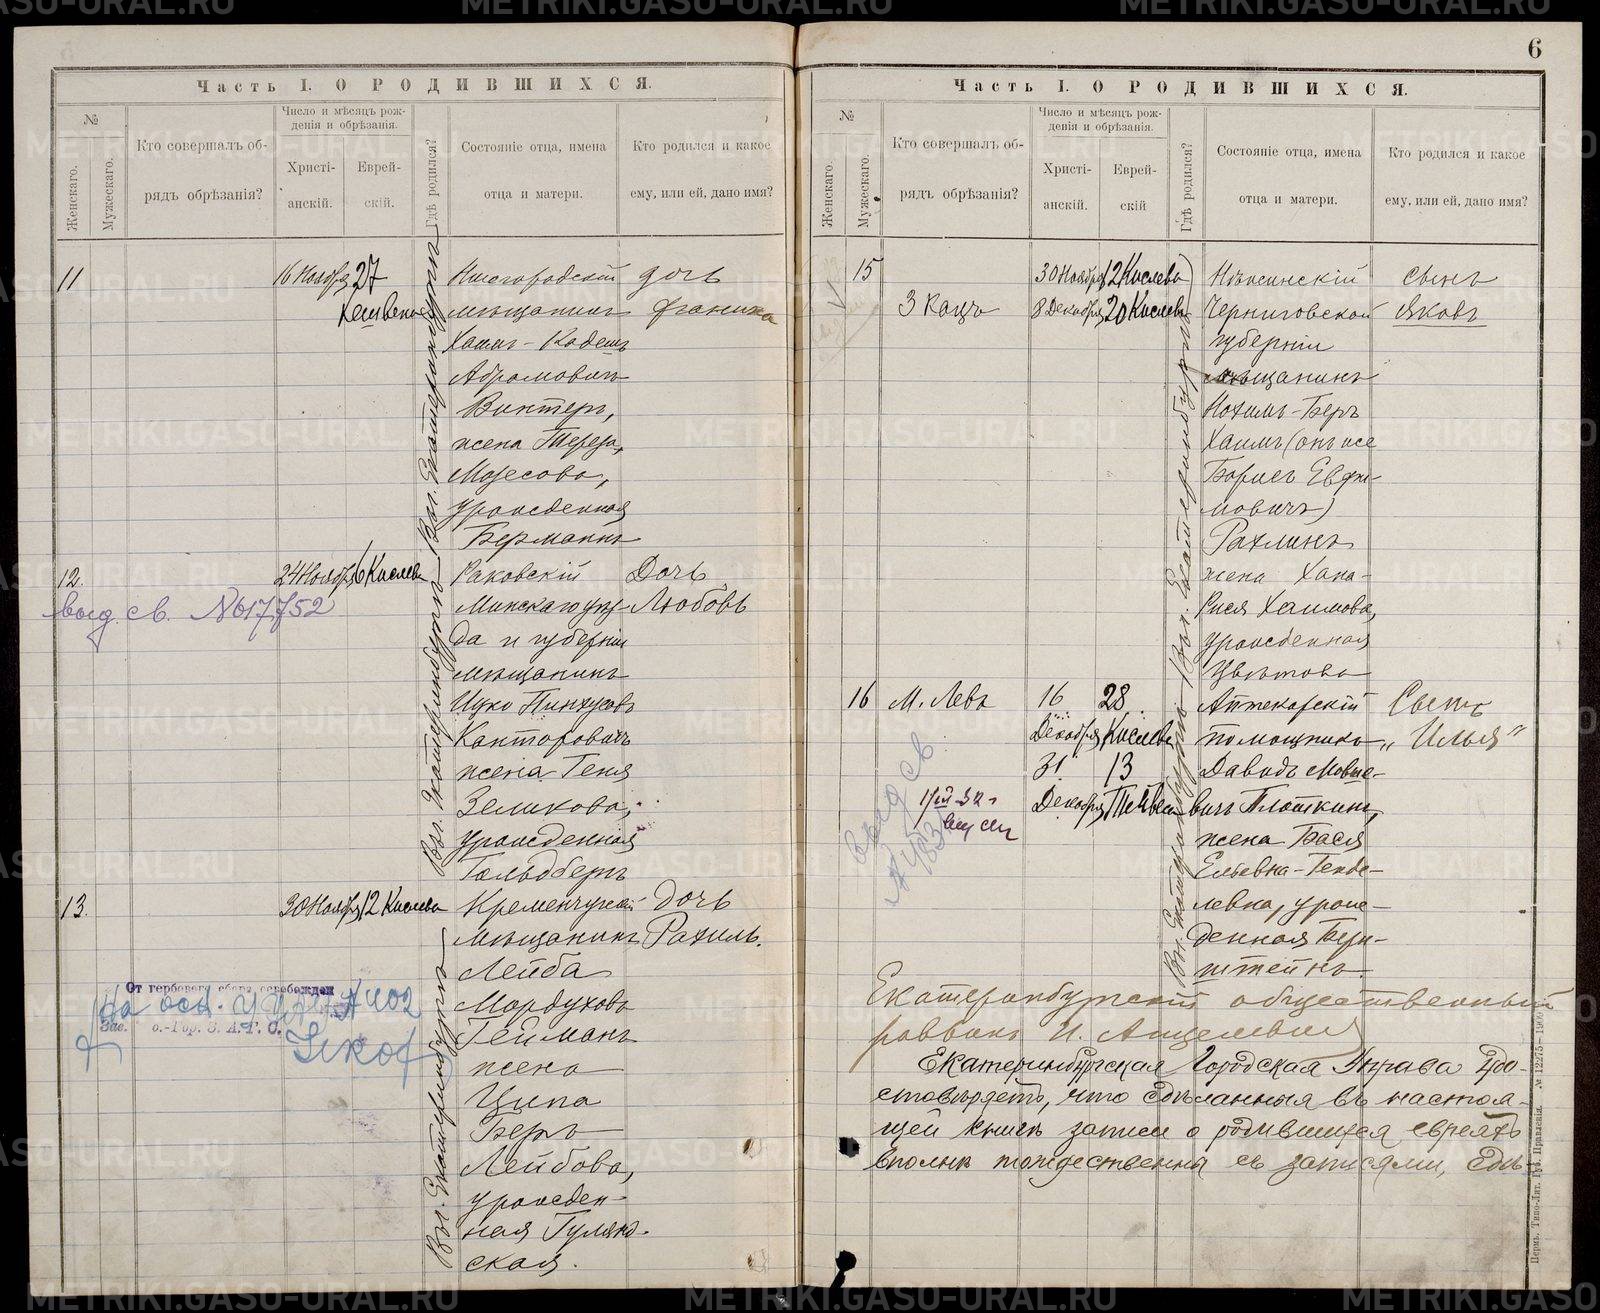 Часть I. О РОДИВШИХСЯ.
№
Женскаго.
Мужескаго.
Кто совершалъ об-
рядъ обрѣзанія?
Число и мѣсяцъ рож-
денія и обрѣзанія.
Христі-
анскій.
Еврей-
скій.
Гдѣ родился?
Состояніе отца, имена
отца и матери.
Кто родился и какое
ему, или ей, дано имя?
11
16 Ноября
27
Хешвена
Въ г. Екатеринбургѣ
мѣщанинъ
Хаимъ-Кадешъ
Абрамовичъ
Винтеръ,
жена Тереза
Мозесова,
урожденная
Берманъ
дочь
12.
выд. св. №17752
24 Ноября
6 Кислева
Въ г. Екатеринбургѣ
Раковскій
Минскаго уѣз-
да и губерніи
мѣщанинъ
Ицко Пинхусовъ
Канторовичъ
жена Геня
Зеликова,
урожденная
Гольдберъ
Дочь
Любовь
13.
30 Ноября
12 Кислева
Въ г. Екатеринбургѣ
Кременчугскій
мѣщанинъ
Лейба
Мордуховъ
Гейманъ
жена
Ципа
Беръ
Лейбова,
урожден-
ная Гулянд-
ская.
Дочь
Рахиль.
От гербового сбора освобожден
6
Часть I. О РОДИВШИХСЯ.
№
Женскаго.
Мужескаго.
Кто совершалъ об-
рядъ обрѣзанія?
Число и мѣсяцъ рож-
денія и обрѣзанія.
Христі-
анскій.
Еврей-
скій
Гдѣ родился?
Состояніе отца, имена
отца и матери.
Кто родился и какое
ему, или ей, дано имя?
15
З Кацъ
30 Ноября
12 Кислева
8 Декабря
20 Кислева
Въ г. Екатеринбургѣ
Нѣжинскій
Черниговской
губерніи
мѣщанинъ
Нохимъ-Беръ
Хаимъ (онъ же
Борисъ Ефи-
мовичъ)
Рахлинъ
жена Хана-
Рися Хаимова,
урожденная
Цвѣтова
сынъ
Яковъ
16
М. Левъ
16
Декабря
28
Кислева
31
Декабря
13
Тейвеса
Въ г. Екатеринбургѣ
Аптекарскій
помощникъ
Давидъ Мовше-
вичъ Плоткинъ,
жена Бася
Ельевна-Генде-
левна, урож-
денная Берн-
штейнъ.
Сынъ
„Илья"
Екатеринбургскій общественный
раввинъ И. Анцелевичъ
Екатеринбургская Городская Управа удо-
стовѣряетъ, что сдѣланныя въ настоя-
щей книгѣ записи о родившихся евреяхъ
вполнѣ тождественны съ записями, сдѣ-
Пермь. Типо-Лит. Губ. Правленія. № 12275-1900
METRIKI.GASO-URAL.RU